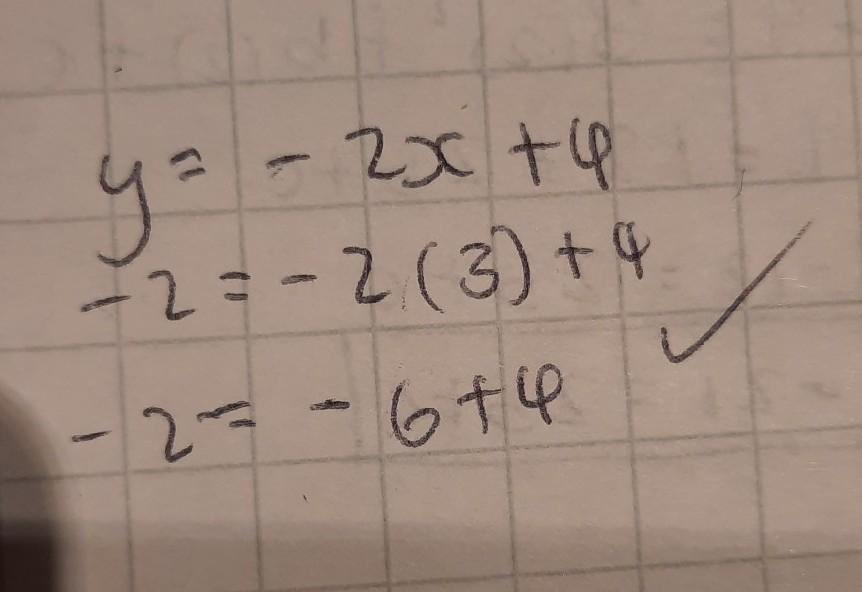 y = - 2x + 4
-2 = - 2 (3) + 4 ✓
-2 = - 6 + 4